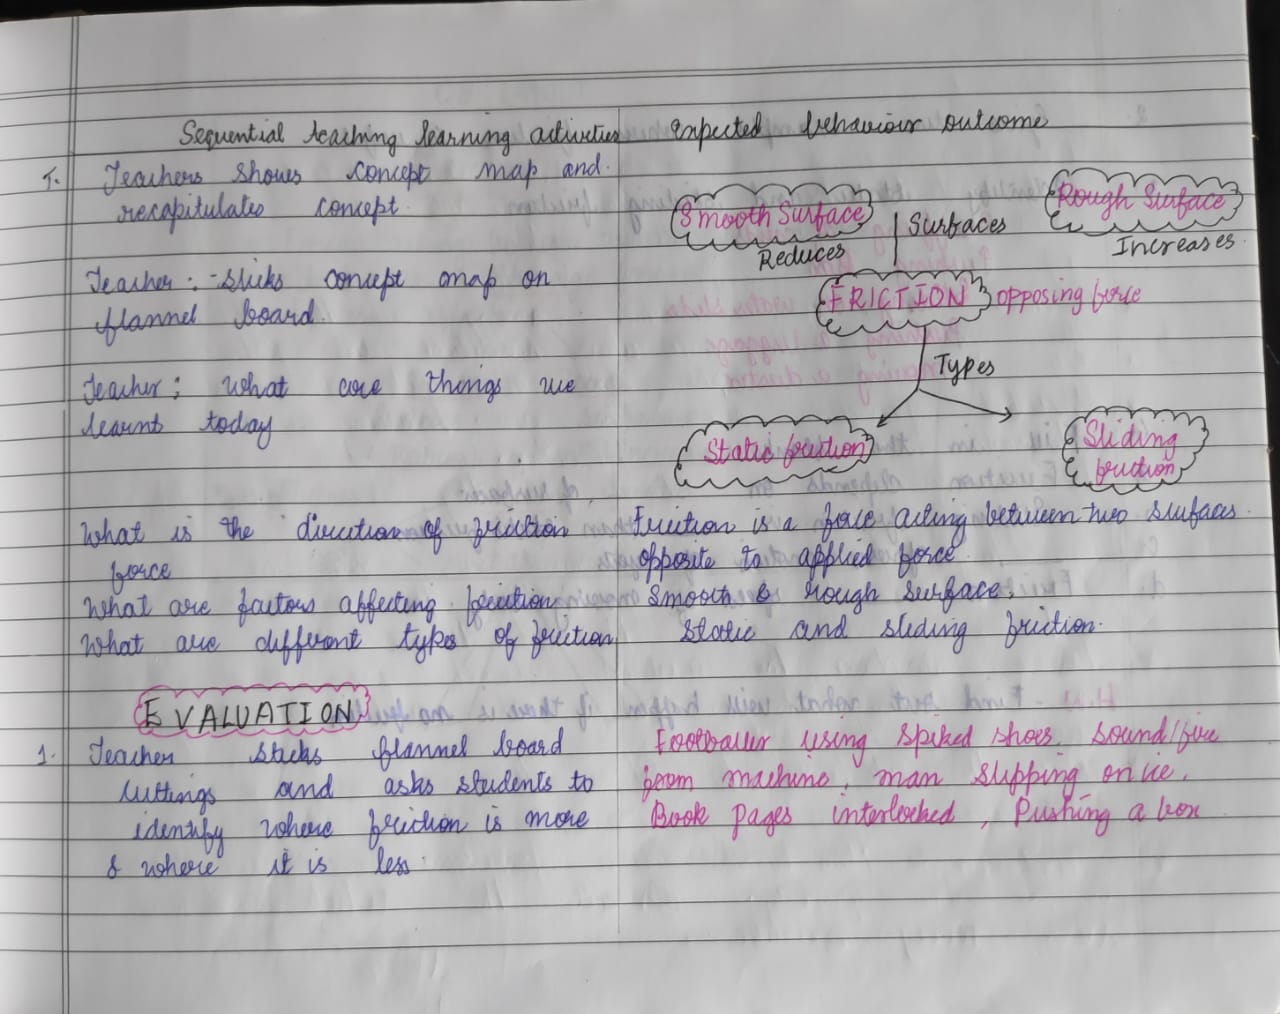 Sequential teaching learning activities
Expected behaviour outcome
Teachers shows concept map and
recapitulates concept.
Teacher: - sticks concept map on
flannel board.
Teacher: what are things we
learnt today
Smooth Surface
Reduces
Surfaces
Rough Surface
Increases
FRICTION opposing force
Types
Static friction
Sliding
friction
What is the direction of friction
force
Friction is a force acting between two surfaces
opposite to applied force.
What are factors affecting friction
Smooth & rough surface.
What are different types of friction
Static and sliding friction.
EVALUATION
1. Teacher sticks flannel board
cuttings and asks students to
identify where friction is more
& where it is less.
Footballer using spiked shoes, sound/fire
from machine, man slipping on ice,
Book pages interlocked, Pushing a box